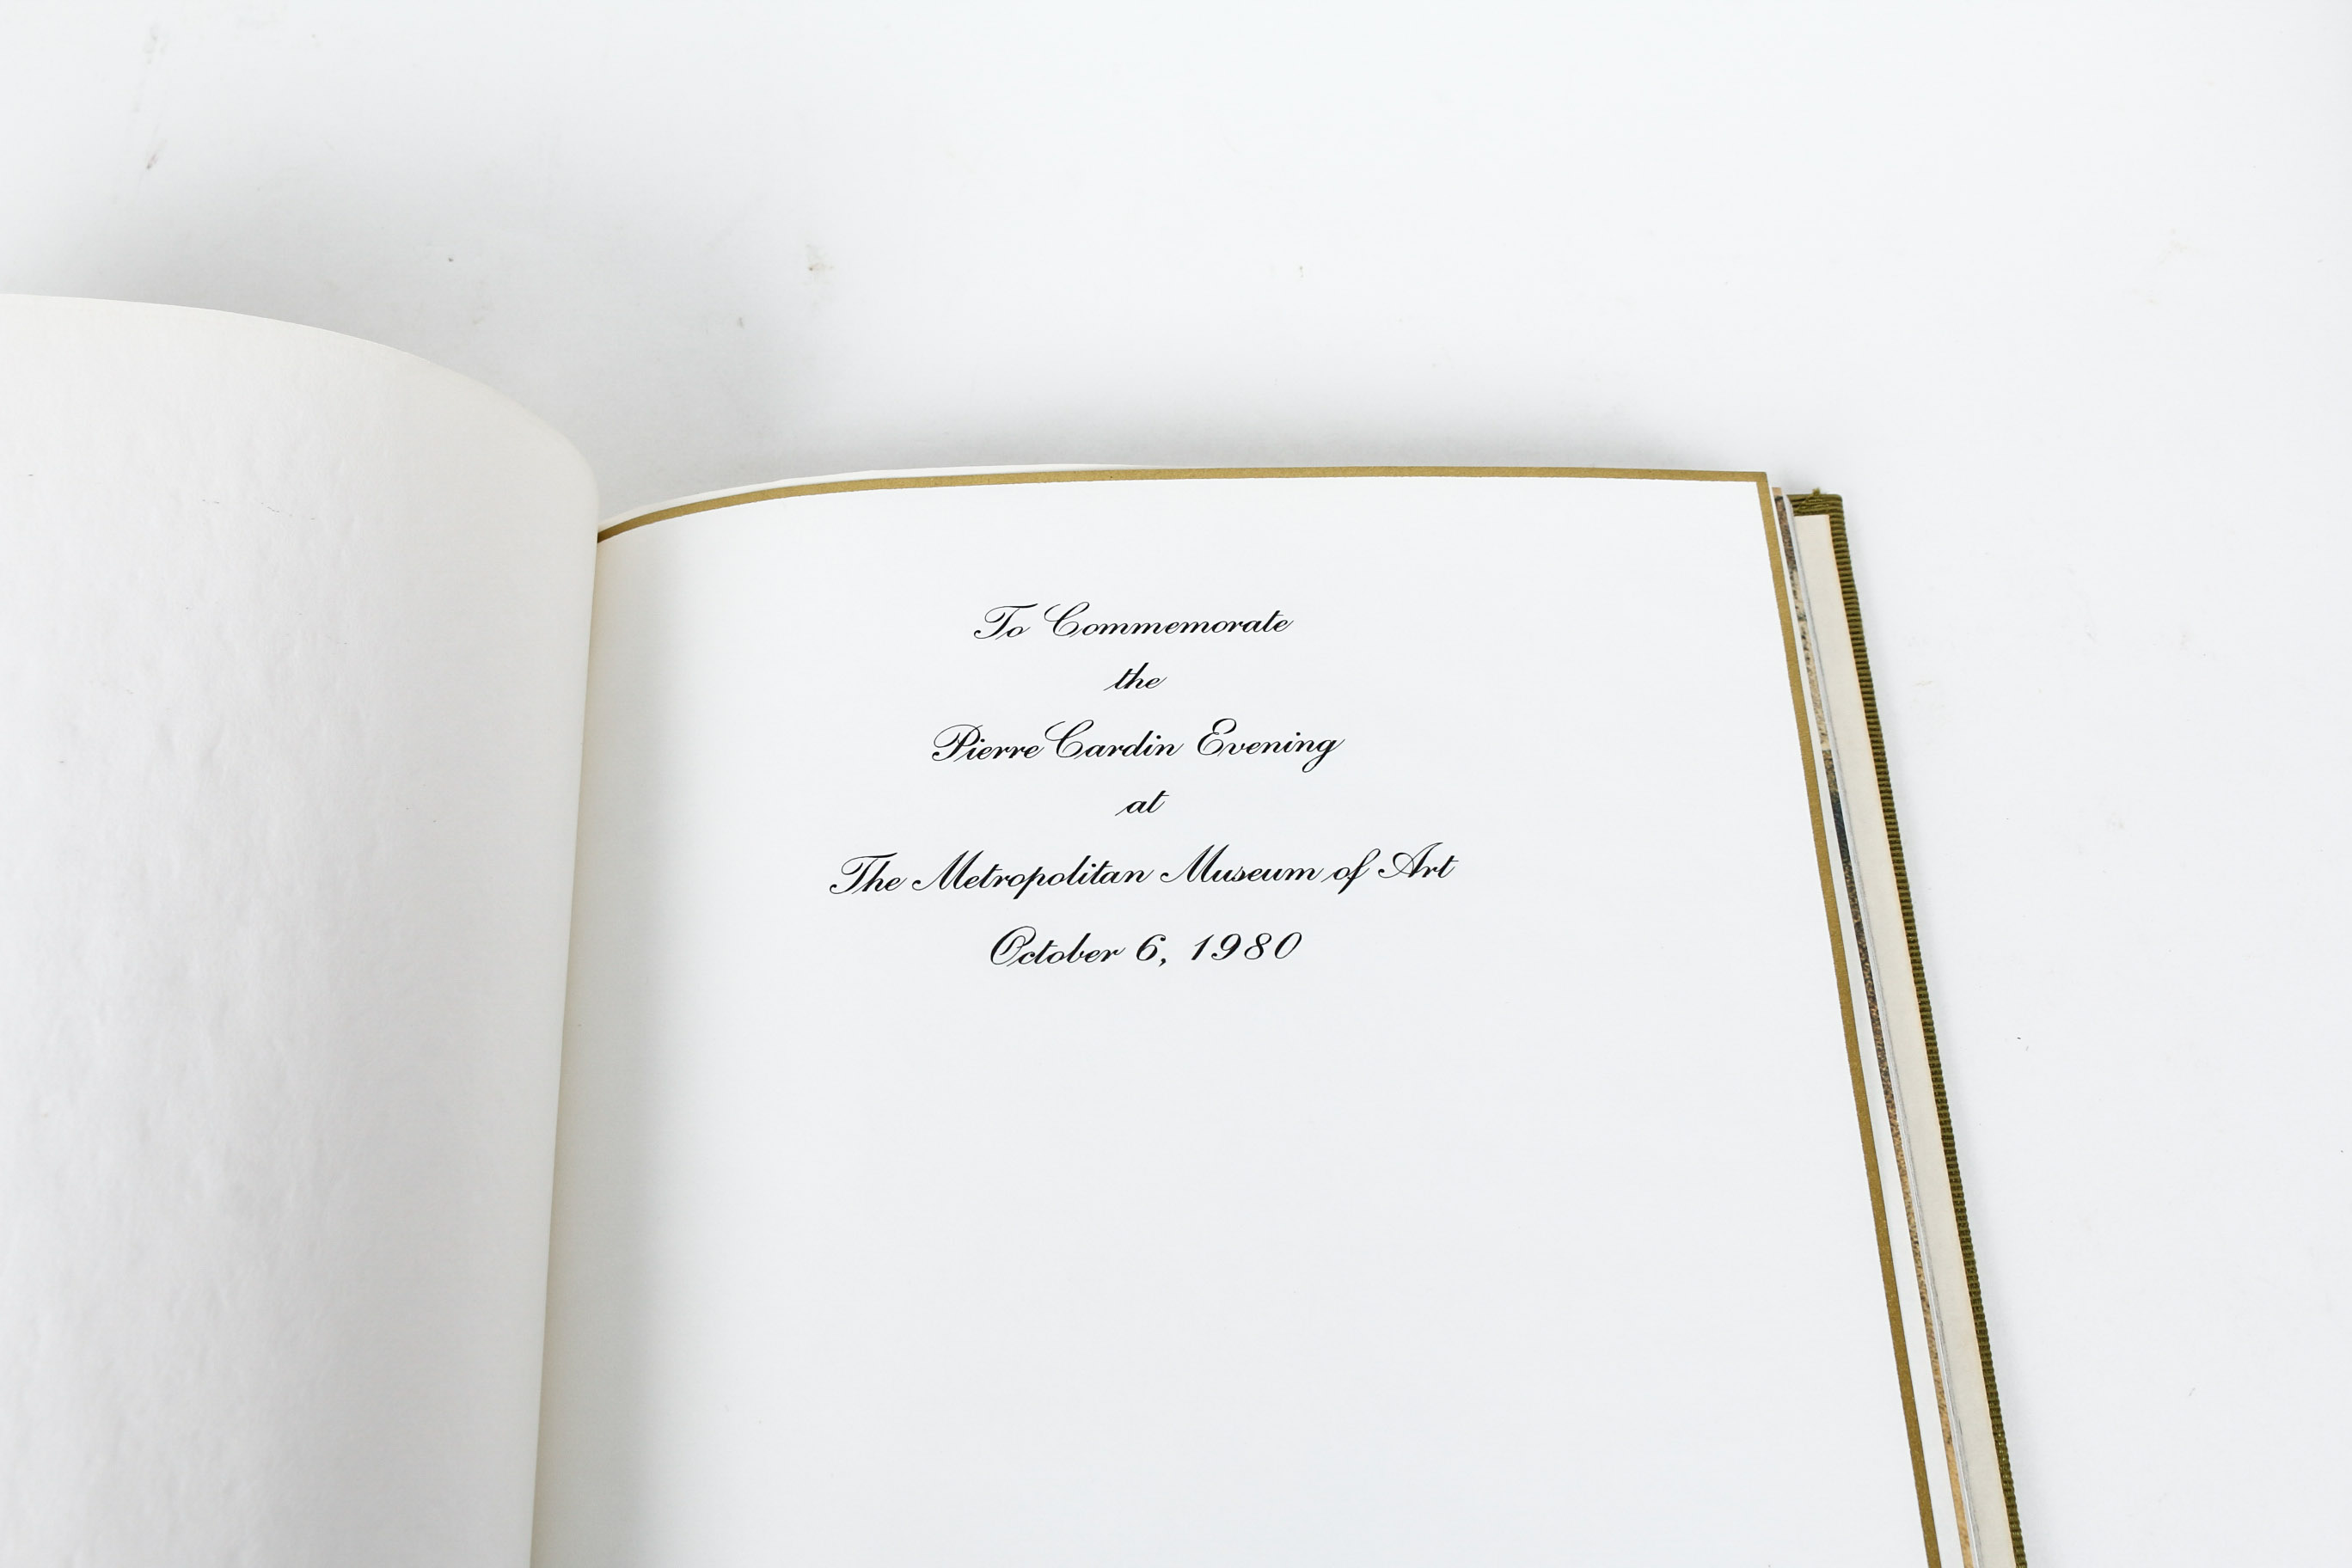 To Commemorate
the
Pierre Cardin Evening
at
The Metropolitan Museum of Art
October 6, 1980